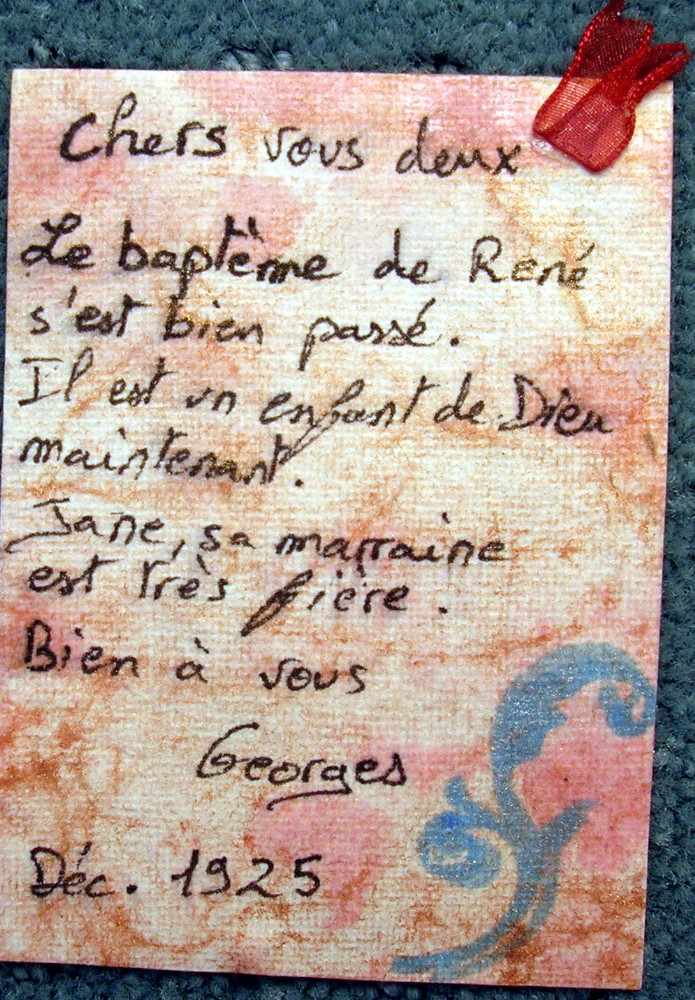 Chers vous deux
Le baptême de René
s'est bien passé.
Il est un enfant de Dieu
maintenant.
Jane, sa marraine
est très fière.
Bien à vous
Georges
Déc. 1925